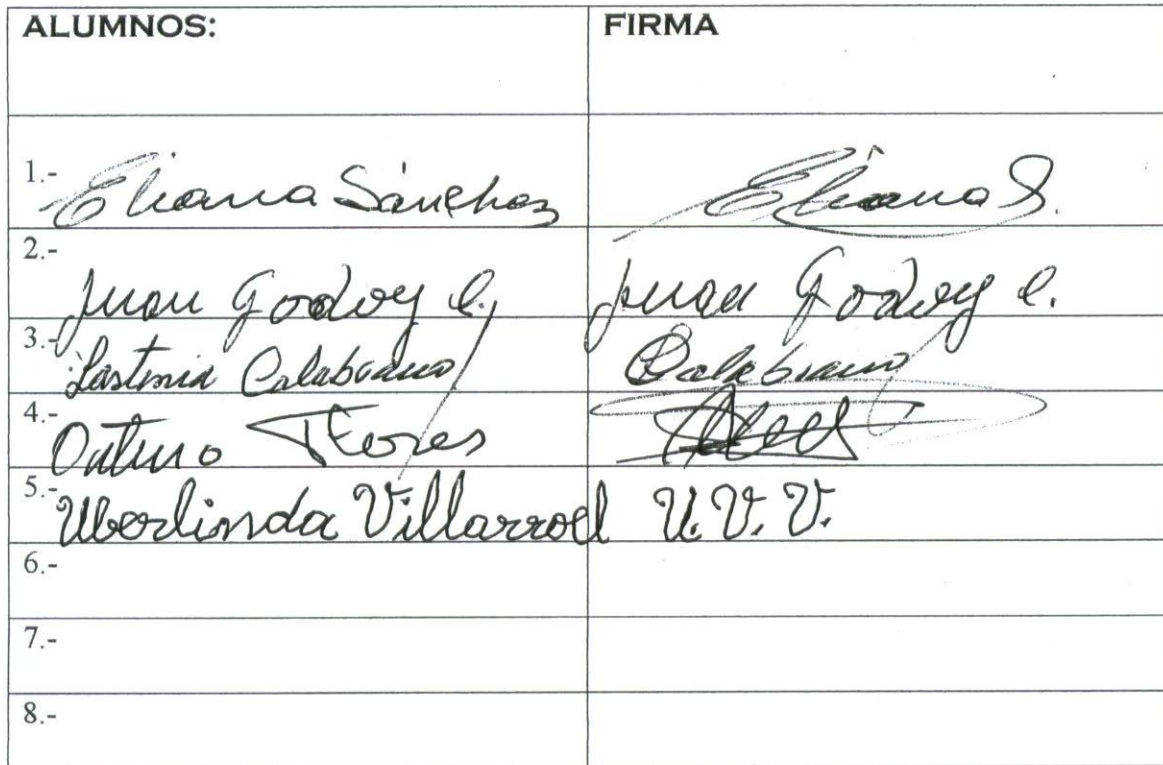 ALUMNOS: FIRMA
1.- Eliana Sánchez Eliana S.
2.- Juan Godoy C. Juan Godoy C.
3.- Lastenia Calabrano Calabrano
4.- Arturo Flores
5.- Uberlinda Villarroel U. V. V.
6.-
7.-
8.-